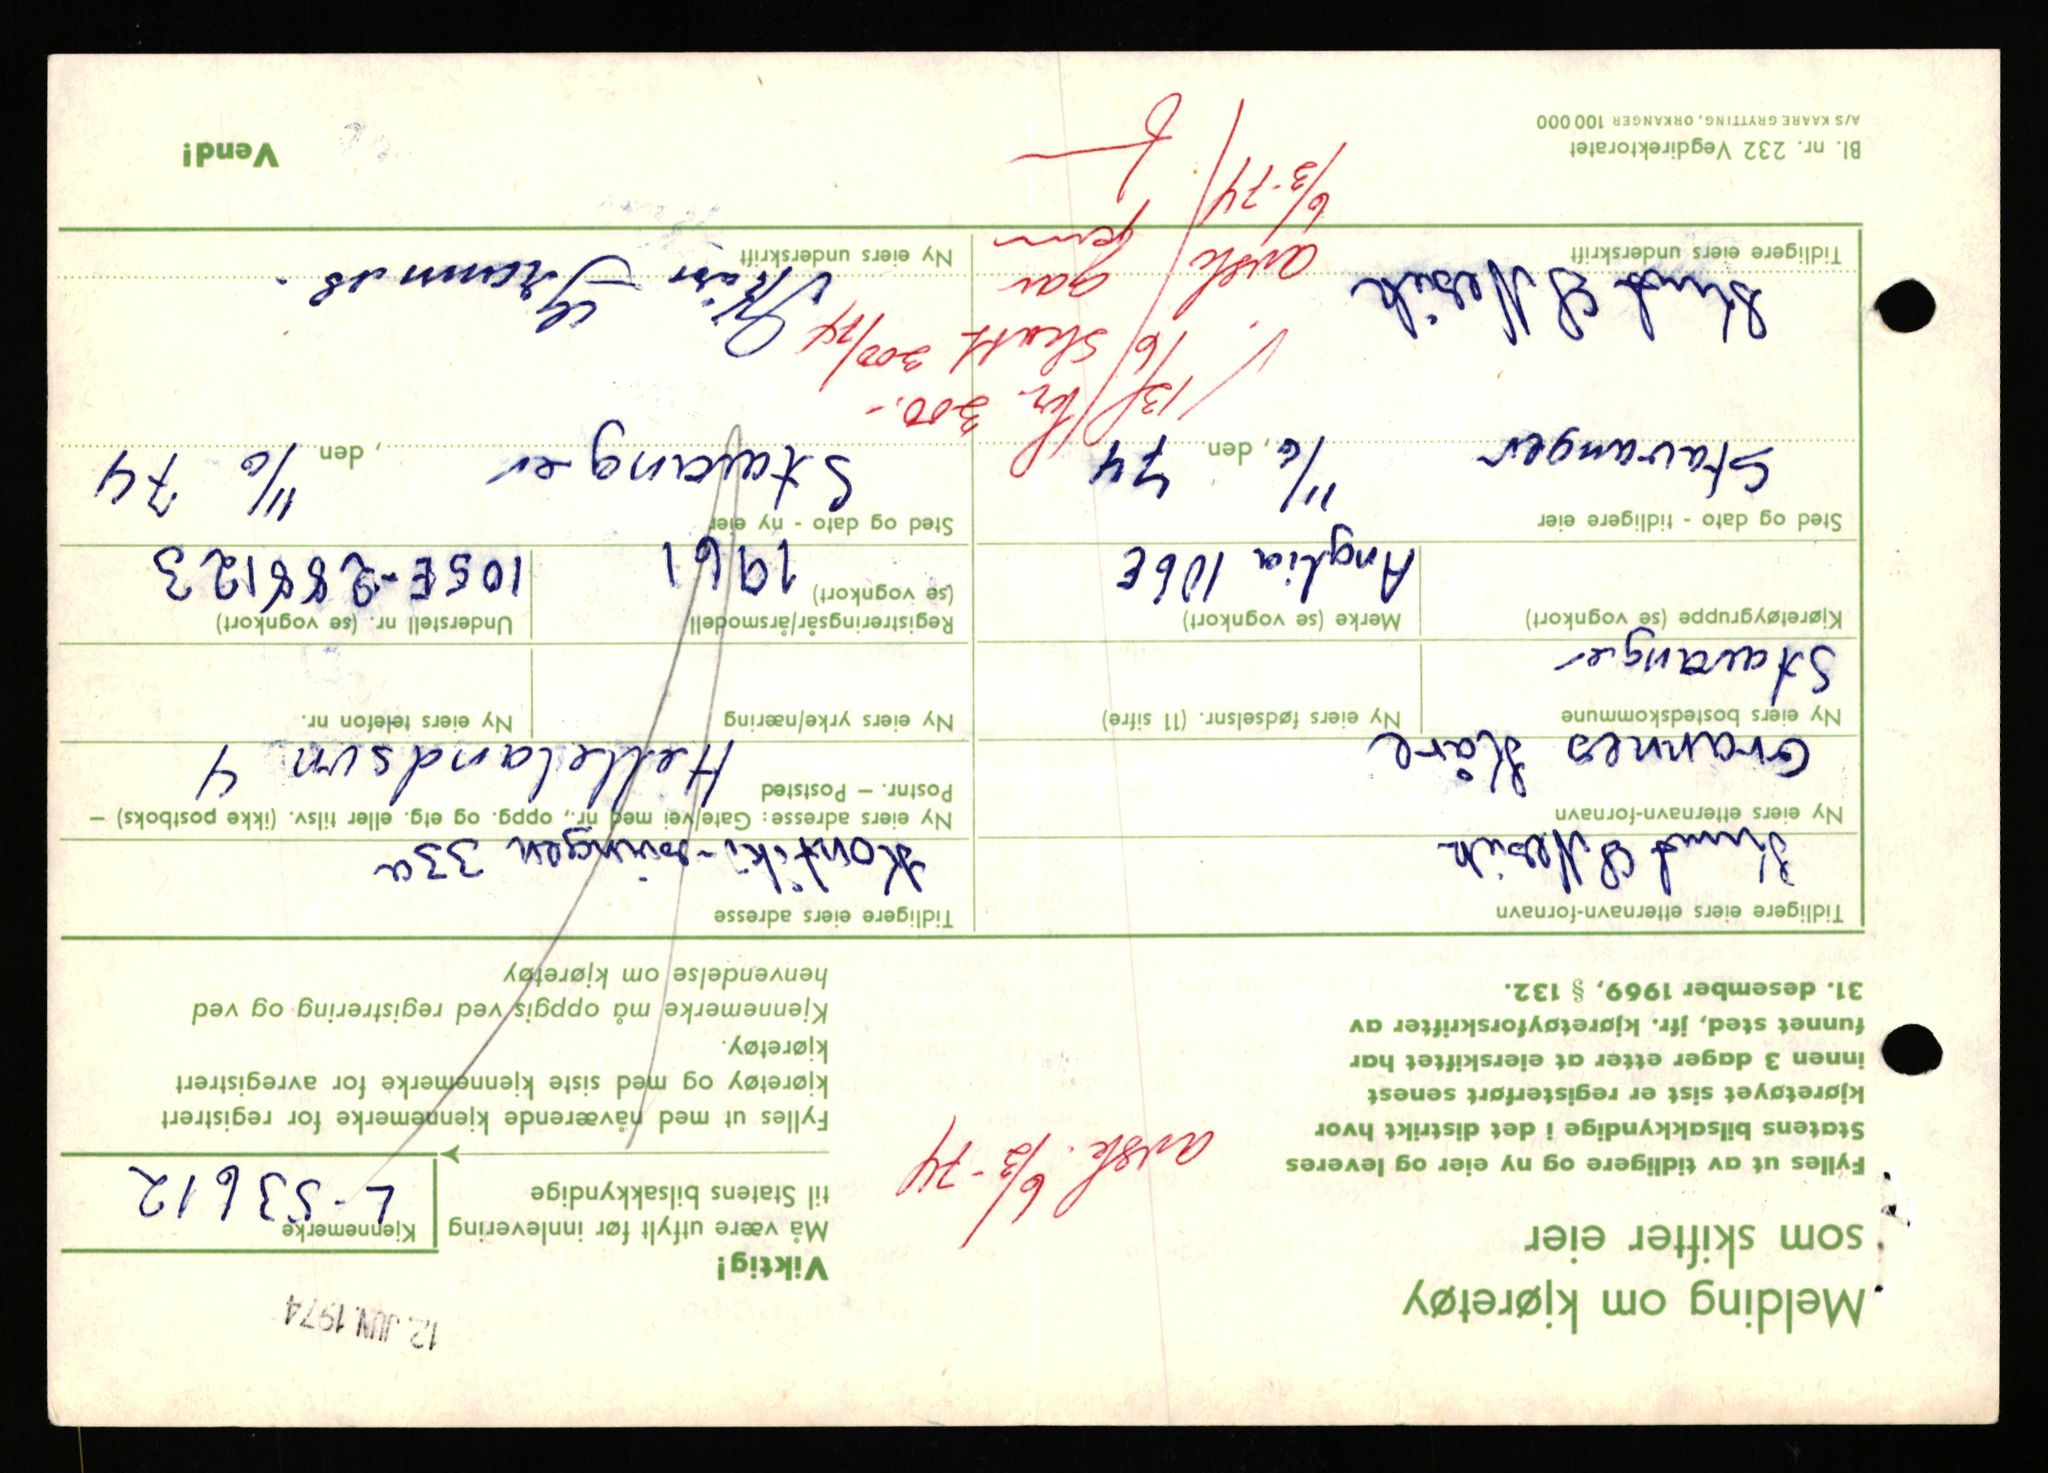 12. JUN. 1974
Melding om kjøretøy
som skifter eier
Viktig!
Må være utfylt før innlevering
til Statens bilsakkyndige
Kjennemerke
L-53612
avsk. 6/3-74
Fylles ut av tidligere og ny eier og leveres
Statens bilsakkyndige i det distrikt hvor
kjøretøyet sist er registerført senest
innen 3 dager etter at eierskiftet har
funnet sted, jfr. kjøretøyforskrifter av
31. desember 1969, § 132.
Fylles ut med nåværende kjennemerke for registrert
kjøretøy og med siste kjennemerke for avregistrert
kjøretøy.
Kjennemerke må oppgis ved registrering og ved
henvendelse om kjøretøy
Tidligere eiers etternavn-fornavn
Knud S
Tidligere eiers adresse
Kontiki-svingen 33a
Ny eiers etternavn-fornavn
Grannes Kåre
Ny eiers adresse: Gate/vei med nr., oppg. og etg. eller tilsv. (ikke postboks) –
Postnr. – Poststed
Hellelandsvn 4
Ny eiers bostedskommune
Stavanger
Ny eiers fødselsnr. (11 sifre)
Ny eiers yrke/næring
Ny eiers telefon nr.
Kjøretøygruppe (se vognkort)
Merke (se vognkort)
Anglia 106E
Registreringsår/årsmodell
(se vognkort)
1961
Understell nr. (se vognkort)
105E-288123
Sted og dato - tidligere eier
Stavanger, den 11/6 74
Sted og dato - ny eier
Stavanger, den 11/6 74
13/6
kr. 300.-
Skatt 300/74
avsk. 6/3-74
Tidligere eiers underskrift
Knud S
Ny eiers underskrift
Kåre Grannes.
Bl. nr. 232 Vegdirektoratet
A/S KAARE GRYTTING, ORKANGER 100 000
Vend!